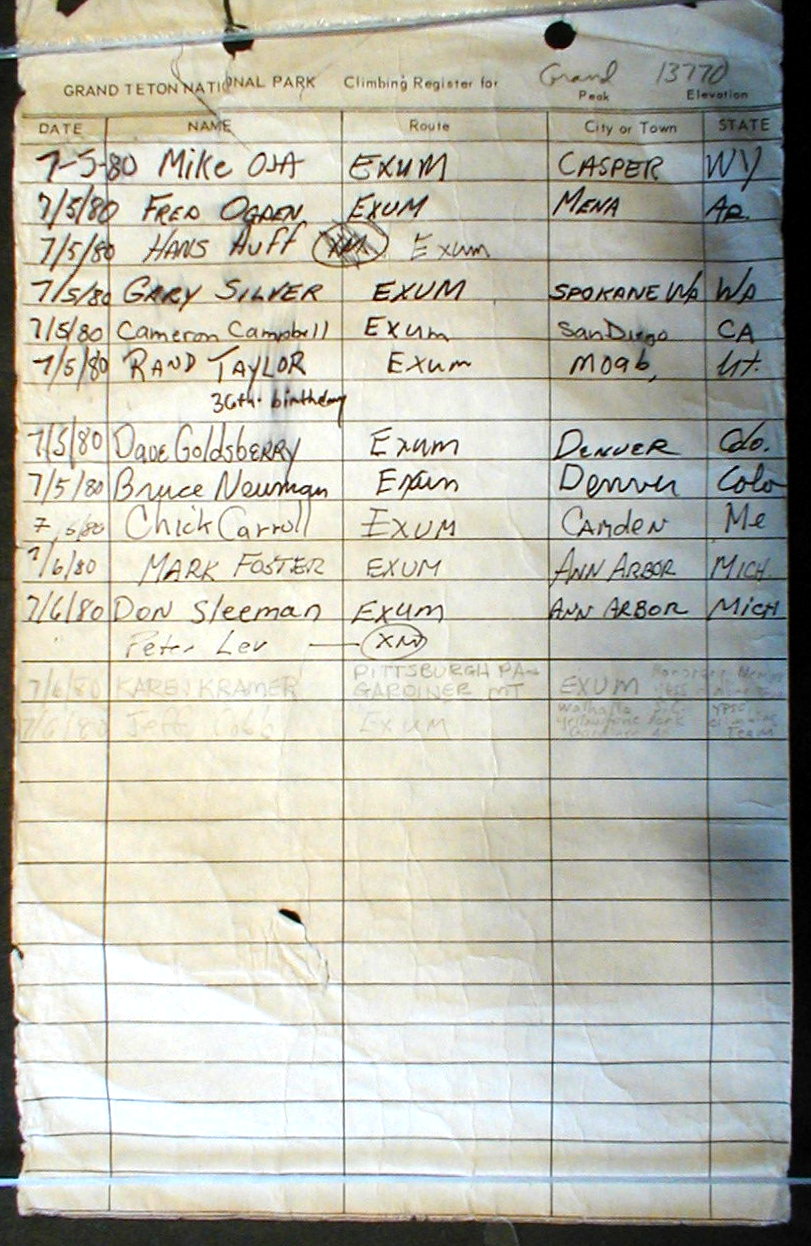 GRAND TETON NATIONAL PARK Climbing Register for Grand 13770
Peak Elevation
DATE NAME Route City or Town STATE
7-5-80 Mike OJA EXUM CASPER WY
7/5/80 FRED OGDEN EXUM MENA AR.
7/5/80 HANS Huff Exum
7/5/80 GARY SILVER EXUM SPOKANE WA WA
7/5/80 Cameron Campbell Exum San Diego CA
7/5/80 RAND TAYLOR Exum Moab, Ut.
36th birthday
7/5/80 Dave Goldsberry Exum DENVER Colo.
7/5/80 Bruce Newman Exum Denver Colo
7/6/80 Chick Carroll EXUM CAMDEN Me
7/6/80 MARK FOSTER EXUM ANN ARBOR MICH.
7/6/80 DON Sleeman Exum ANN ARBOR MICH
Peter Lev — XM
PITTSBURGH PA
7/6/80 KAREN KRAMER GARDINER MT EXUM
7/6/80 Jeff Exum Walhalla S.C. Yellowstone Park Team